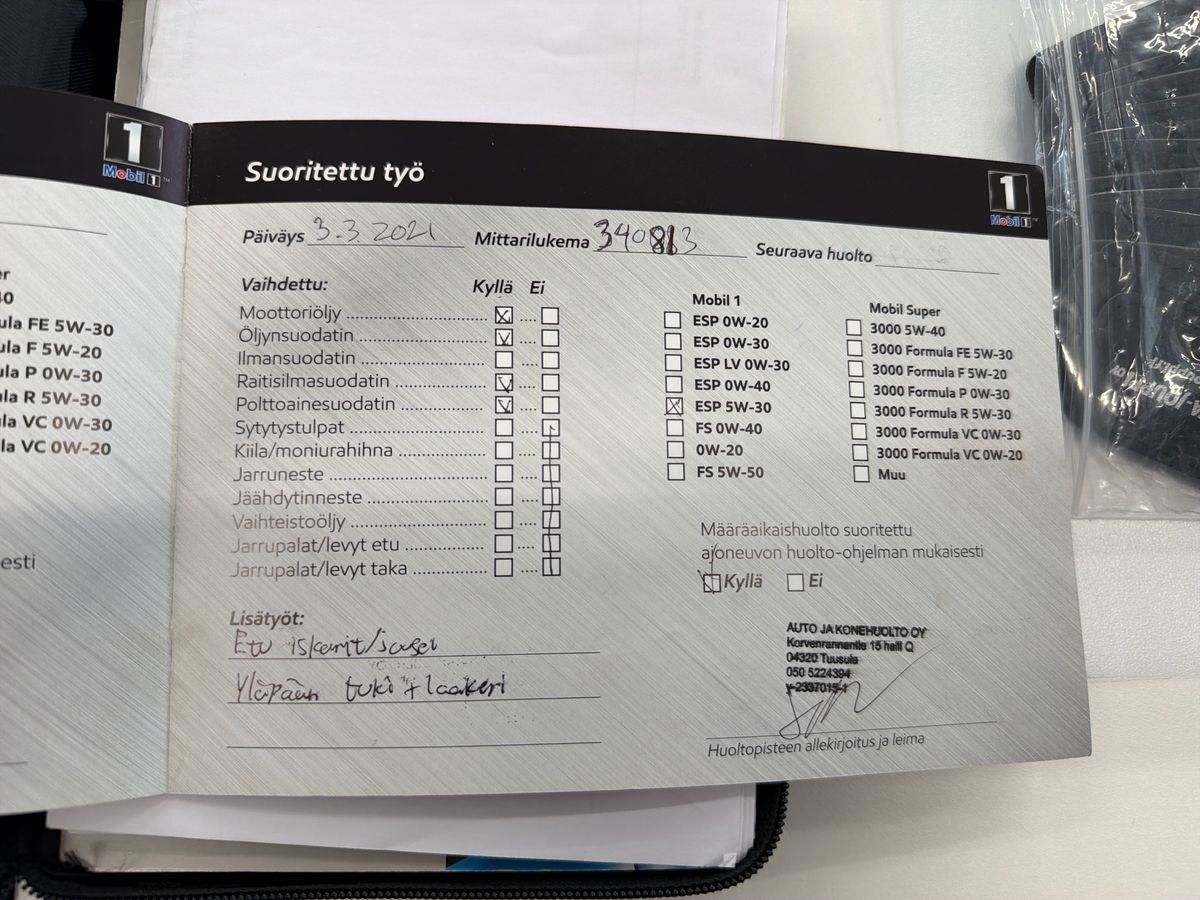 1
Mobil 1
FE 5W-30
F 5W-20
P 0W-30
R 5W-30
VC 0W-30
VC 0W-20
Suoritettu työ
1
Mobil 1
Päiväys 3.3.2021 Mittarilukema 340813 Seuraava huolto
Vaihdettu: Kyllä Ei
Moottoriöljy
Öljynsuodatin
Ilmansuodatin
Raitisilmasuodatin
Polttoainesuodatin
Sytytystulpat
Kiila/moniurahihna
Jarruneste
Jäähdytinneste
Vaihteistoöljy
Jarrupalat/levyt etu
Jarrupalat/levyt taka
Mobil 1
ESP 0W-20
ESP 0W-30
ESP LV 0W-30
ESP 0W-40
ESP 5W-30
FS 0W-40
0W-20
FS 5W-50
Mobil Super
3000 5W-40
3000 Formula FE 5W-30
3000 Formula F 5W-20
3000 Formula P 0W-30
3000 Formula R 5W-30
3000 Formula VC 0W-30
3000 Formula VC 0W-20
Muu
Määräaikaishuolto suoritettu
ajoneuvon huolto-ohjelman mukaisesti
Kyllä Ei
Lisätyöt:
Etu iskarit/jouset
Yläpään tuki + laakeri
AUTO JA KONEHUOLTO OY
Korvenrannantie 15 halli Q
04320 Tuusula
050 5224394
y-2337015-1
Huoltopisteen allekirjoitus ja leima